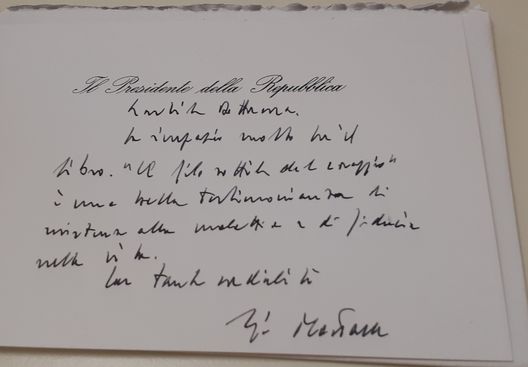 Il Presidente della Repubblica
Gentile
La ringrazio molto per il
libro. "Il filo sottile del coraggio"
è una bella testimonianza di
resistenza alla malattia e di fiducia
nella vita.
Con tanta cordialità
Mattarella